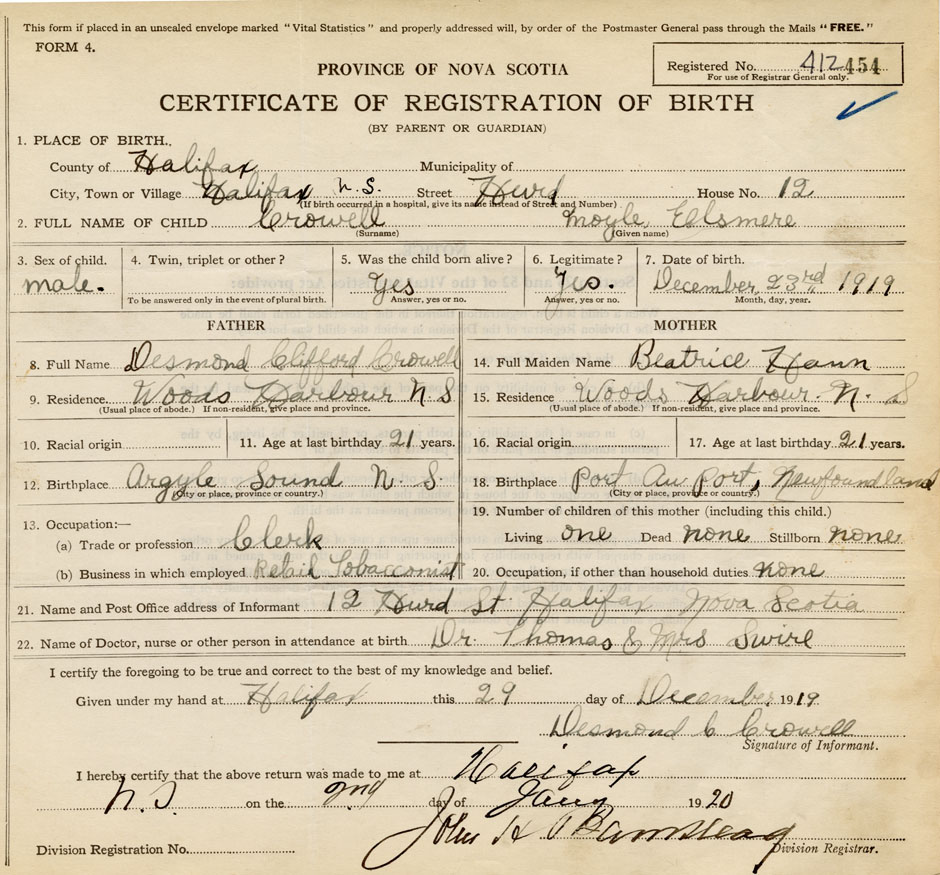 This form if placed in an unsealed envelope marked "Vital Statistics" and properly addressed will, by order of the Postmaster General pass through the Mails "FREE."
FORM 4.
Registered No. 412 454
For use of Registrar General only.
PROVINCE OF NOVA SCOTIA
CERTIFICATE OF REGISTRATION OF BIRTH
(BY PARENT OR GUARDIAN)
1. PLACE OF BIRTH.
County of Halifax Municipality of
City, Town or Village Halifax N.S. Street Hurd House No. 12
(If birth occurred in a hospital, give its name instead of Street and Number)
2. FULL NAME OF CHILD Crowell Moyle Ellsmere
(Surname) (Given name)
3. Sex of child. 4. Twin, triplet or other? 5. Was the child born alive? 6. Legitimate? 7. Date of birth.
male. Yes Yes. December 23rd 1919
To be answered only in the event of plural birth. Answer, yes or no. Answer, yes or no. Month, day, year.
FATHER MOTHER
8. Full Name Desmond Clifford Crowell 14. Full Maiden Name Beatrice Hann
9. Residence Woods Harbour N S 15. Residence Woods Harbour N. S
(Usual place of abode.) If non-resident, give place and province. (Usual place of abode.) If non-resident, give place and province.
10. Racial origin 11. Age at last birthday 21 years. 16. Racial origin 17. Age at last birthday 21 years.
12. Birthplace Argyle Sound N. S. 18. Birthplace Port Au Port, Newfoundland
(City or place, province or country.) (City or place, province or country.)
13. Occupation:— 19. Number of children of this mother (including this child.)
(a) Trade or profession Clerk Living one Dead none Stillborn none
(b) Business in which employed Retail Tobacconist 20. Occupation, if other than household duties none
21. Name and Post Office address of Informant 12 Hurd St. Halifax Nova Scotia
22. Name of Doctor, nurse or other person in attendance at birth Dr. Thomas & Mrs Swire
I certify the foregoing to be true and correct to the best of my knowledge and belief.
Given under my hand at Halifax this 29 day of December 1919
Desmond C Crowell
Signature of Informant.
I hereby certify that the above return was made to me at Halifax
N.S. on the 2nd day of Jany 1920
John H
Division Registration No. Division Registrar.